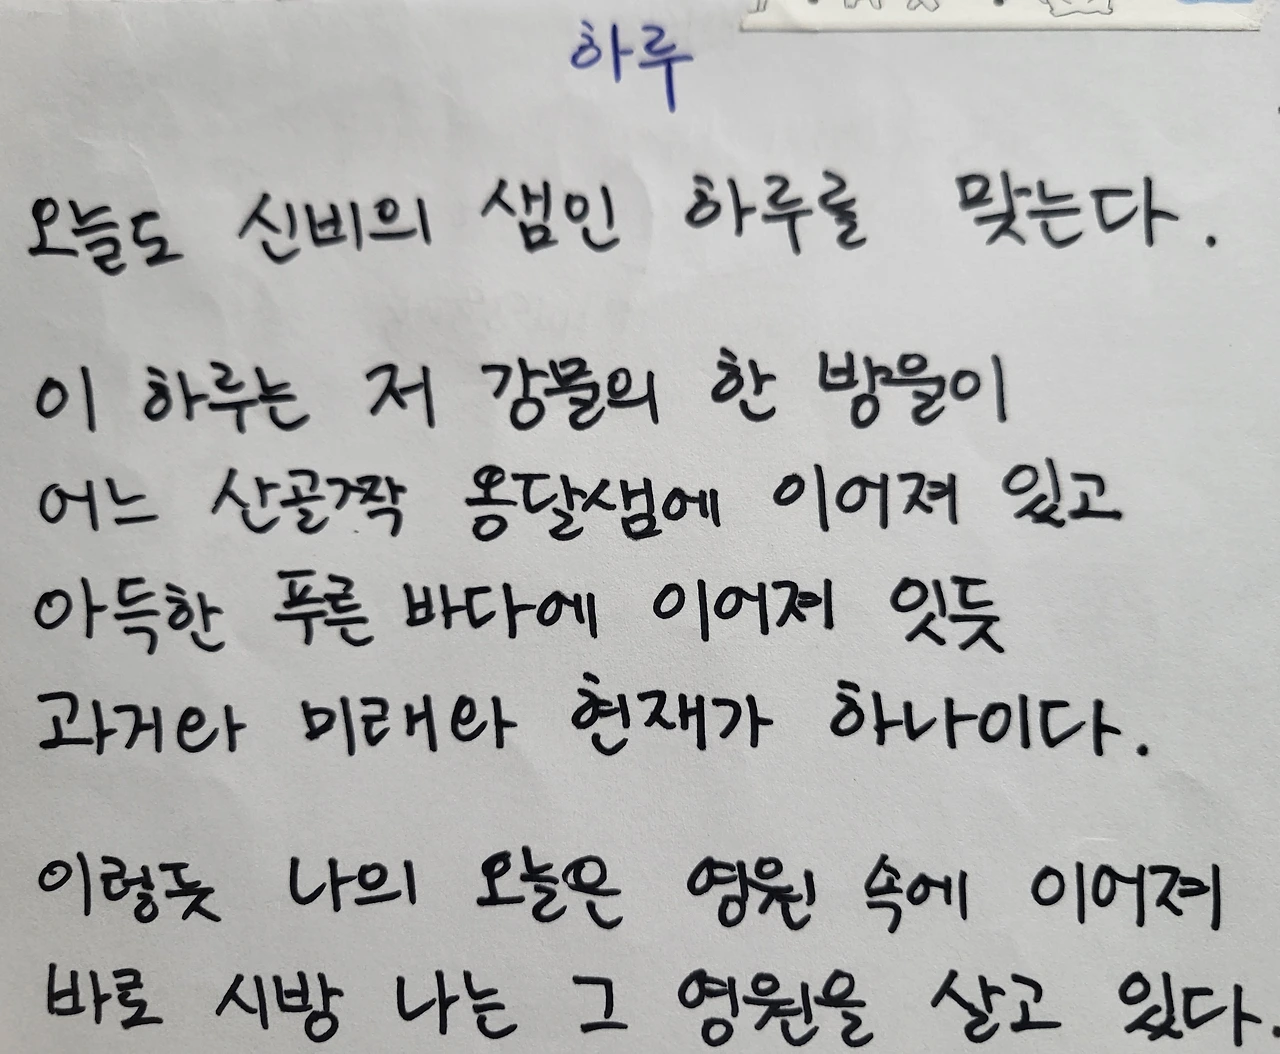 하루
오늘도 신비의 샘인 하루를 맞는다.
이 하루는 저 강물의 한 방울이
어느 산골짝 옹달샘에 이어져 있고
아득한 푸른 바다에 이어져 잇듯
과거와 미래와 현재가 하나이다.
이렇듯 나의 오늘은 영원 속에 이어져
바로 시방 나는 그 영원을 살고 있다.